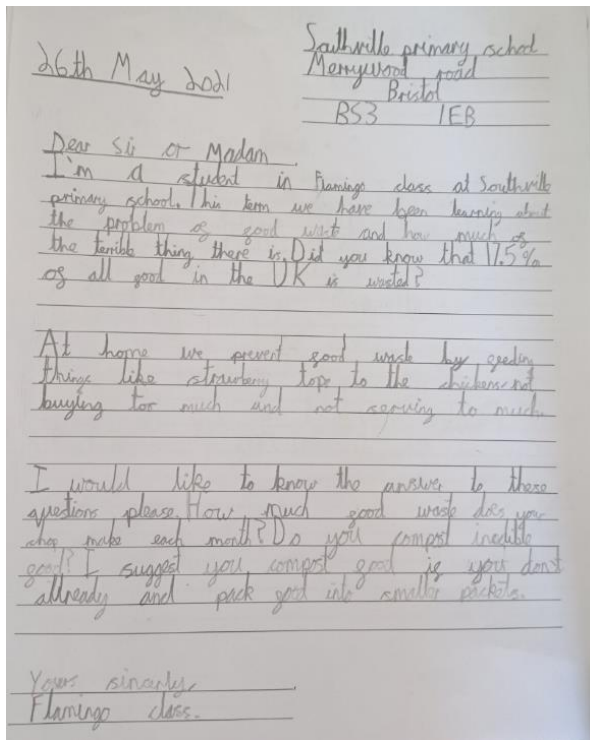 26th May 2021
Southville primary school
Merrywood road
Bristol
BS3 1EB
Dear Sir or Madam
I'm a student in Flamingo class at Southville
primary school. This term we have been learning about
the problem of food waste and how much of
the terrible thing there is. Did you know that 17.5%
of all food in the UK is wasted?
At home we prevent food waste by feeding
things like strawberry tops to the chickens, not
buying too much and not serving to much.
I would like to know the answer to these
questions please. How much food waste does your
shop make each month? Do you compost inedible
food? I suggest you compost food if you don't
allready and pack food into smaller packets.
Yours sincerly,
Flamingo class.